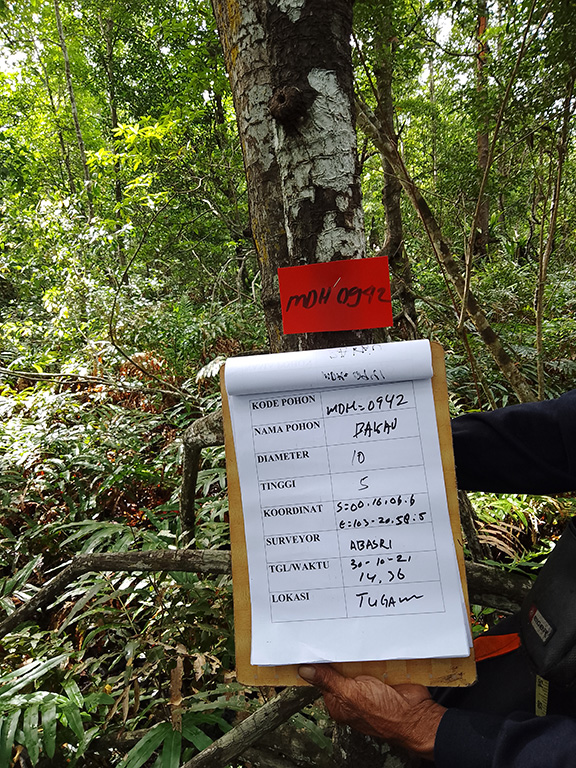 MDH 0942
KODE POHON MDH=0942
NAMA POHON BAKAU
DIAMETER 10
TINGGI 5
KOORDINAT S=00.16.06.6
E=103-20.58.5
SURVEYOR ABASRI
TGL/WAKTU 30-10-21
14,36
LOKASI TUGAM